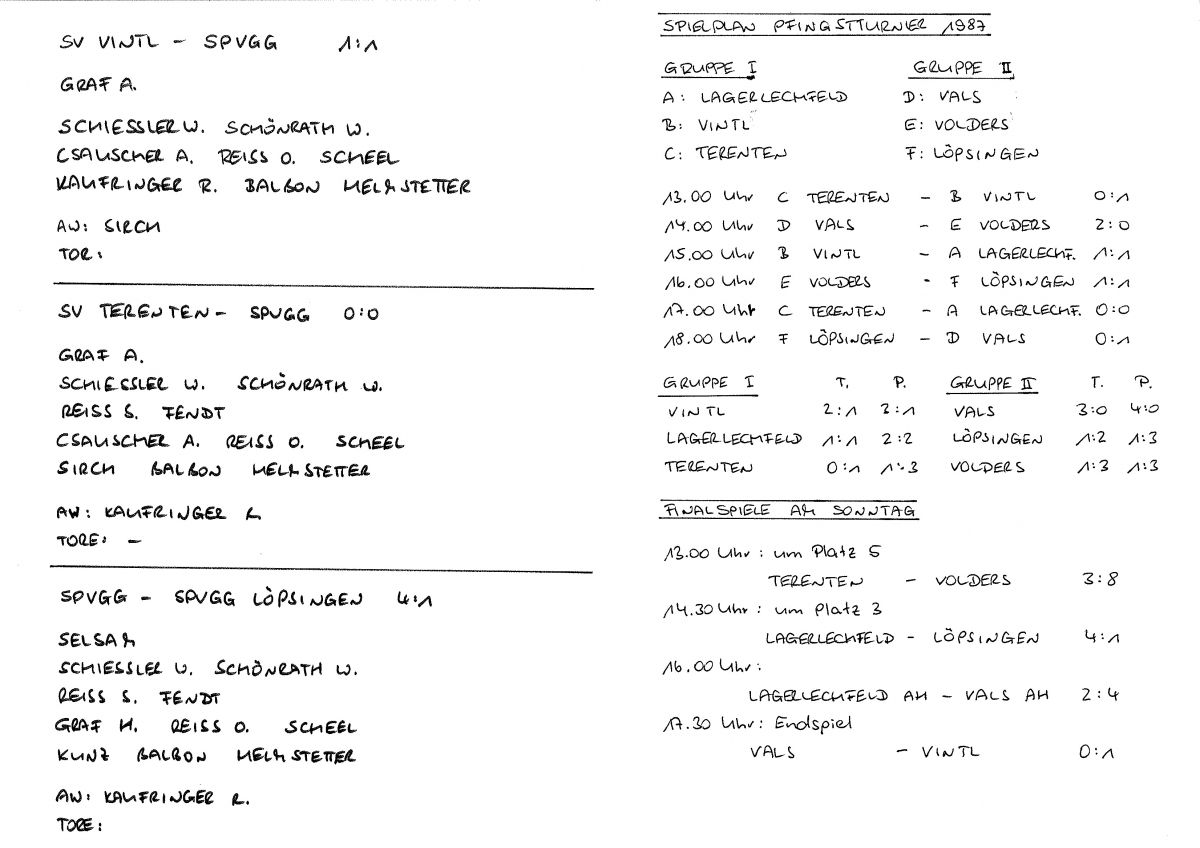 SV VINTL - SPVGG 1:1
GRAF A.
SCHIESSLER W. SCHÖNRATH W.
CSAUSCHER A. REISS O. SCHEEL
KAUFRINGER R. BALBON HELMSTETTER
AW: SIRCH
TOR:
SV TERENTEN - SPVGG 0:0
GRAF A.
SCHIESSLER W. SCHÖNRATH W.
REISS S. FENDT
CSAUSCHER A. REISS O. SCHEEL
SIRCH BALBON HELMSTETTER
AW: KAUFRINGER R.
TORE: -
SPVGG - SPVGG LÖPSINGEN 4:1
SELSAM
SCHIESSLER W. SCHÖNRATH W.
REISS S. FENDT
GRAF H. REISS O. SCHEEL
KUNZ BALBON HELMSTETTER
AW: KAUFRINGER R.
TORE:
SPIELPLAN PFINGSTTURNIER 1987
GRUPPE I GRUPPE II
A: LAGERLECHFELD D: VALS
B: VINTL E: VOLDERS
C: TERENTEN F: LÖPSINGEN
13.00 Uhr C TERENTEN - B VINTL 0:1
14.00 Uhr D VALS - E VOLDERS 2:0
15.00 Uhr B VINTL - A LAGERLECHF. 1:1
16.00 Uhr E VOLDERS - F LÖPSINGEN 1:1
17.00 Uhr C TERENTEN - A LAGERLECHF. 0:0
18.00 Uhr F LÖPSINGEN - D VALS 0:1
GRUPPE I T. P. GRUPPE II T. P.
VINTL 2:1 3:1 VALS 3:0 4:0
LAGERLECHFELD 1:1 2:2 LÖPSINGEN 1:2 1:3
TERENTEN 0:1 1:3 VOLDERS 1:3 1:3
FINALSPIELE AM SONNTAG
13.00 Uhr: um Platz 5
TERENTEN - VOLDERS 3:8
14.30 Uhr: um Platz 3
LAGERLECHFELD - LÖPSINGEN 4:1
16.00 Uhr:
LAGERLECHFELD AH - VALS AH 2:4
17.30 Uhr: Endspiel
VALS - VINTL 0:1